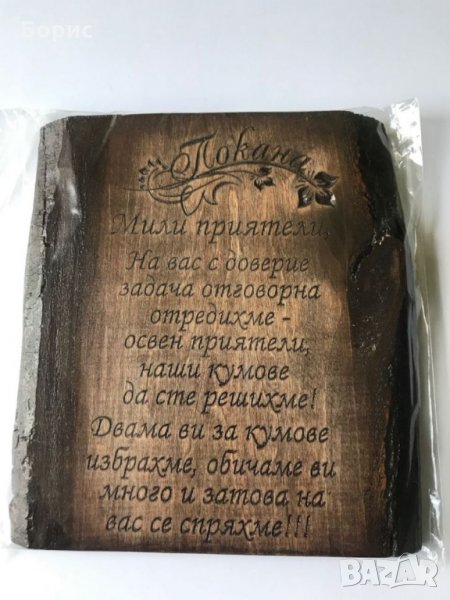 Борис
Покана
Мили приятели,
На вас с доверие
задача отговорна
отредихме -
освен приятели,
наши кумове
да сте решихме!
Двама ви за кумове
избрахме, обичаме ви
много и затова на
вас се спряхме!!!
BAZAR